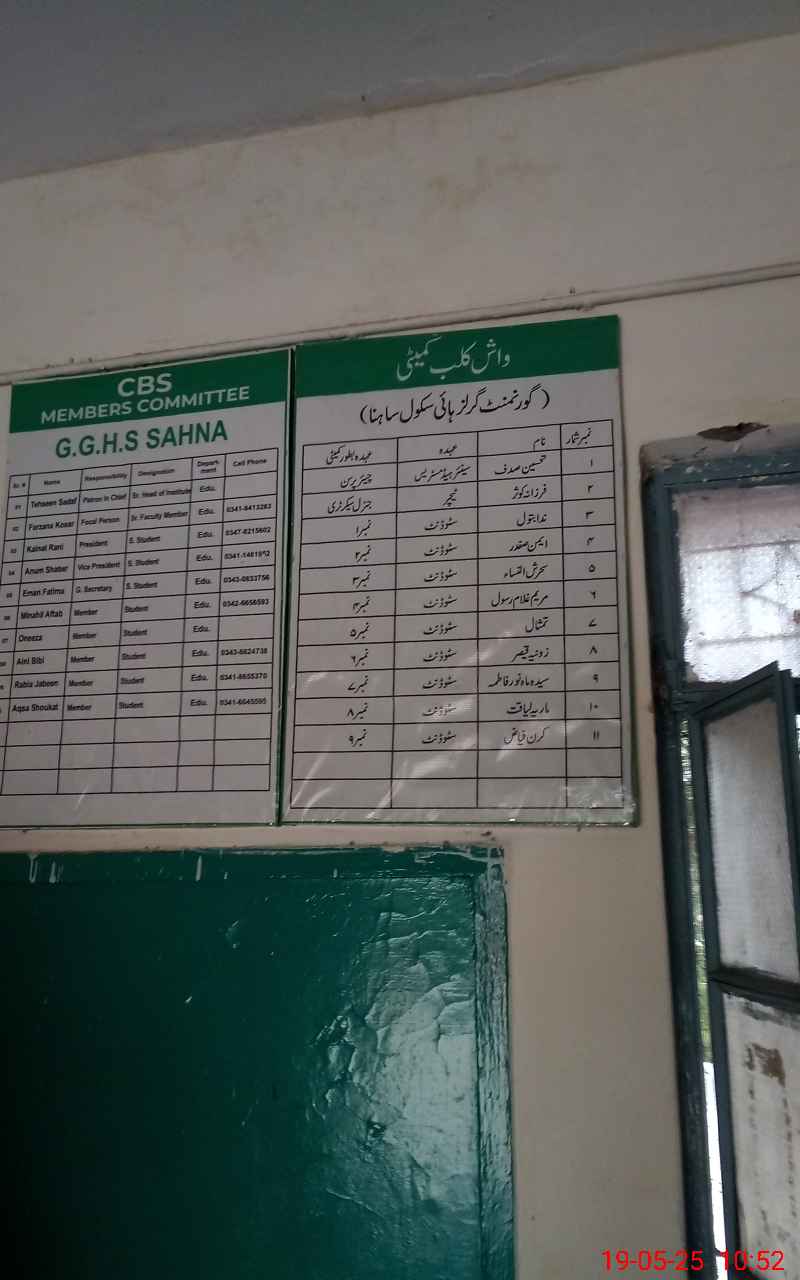 CBS
MEMBERS COMMITTEE
G.G.H.S SAHNA
Sr. # Name Responsibility Designation Depart-ment Cell Phone
01 Tehseen Sadaf Patron in Chief Sr. Head of Institute Edu.
02 Farzana Kosar Focal Person Sr. Faculty Member Edu. 0341-8413283
03 Kainat Rani President S. Student Edu. 0347-6215602
04 Anum Shabar Vice President S. Student Edu.
05 Eman Fatima G. Secretary S. Student Edu. 0343-0633756
06 Minahil Aftab Member Student Edu. 0342-6656593
07 Oneeza Member Student Edu.
Aini Bibi Member Student Edu. 0343-6624738
Rabia Jabeen Member Student Edu. 0341-8655370
Aqsa Shoukat Member Student Edu. 0341-6645595
واش کلب کمیٹی
(گورنمنٹ گرلز ہائی سکول ساہنا)
نمبر شمار نام عہدہ عہدہ بطور کمیٹی
۱ تحسین صدف سینئر ہیڈ مسٹریس چیئر پرسن
۲ فرزانہ کوثر ٹیچر جنرل سیکرٹری
۳ ندا بتول سٹوڈنٹ نمبر۱
۴ ایمن صفدر سٹوڈنٹ نمبر۲
۵ سحرش النساء سٹوڈنٹ نمبر۳
۶ مریم غلام رسول سٹوڈنٹ نمبر۴
۷ تمثال سٹوڈنٹ نمبر۵
۸ زونیہ قیصر سٹوڈنٹ نمبر۶
۹ سیدہ ماہ نور فاطمہ سٹوڈنٹ نمبر۷
۱۰ ماریہ لیاقت سٹوڈنٹ نمبر۸
۱۱ کرن فیاض سٹوڈنٹ نمبر۹
19-05-25 10:52